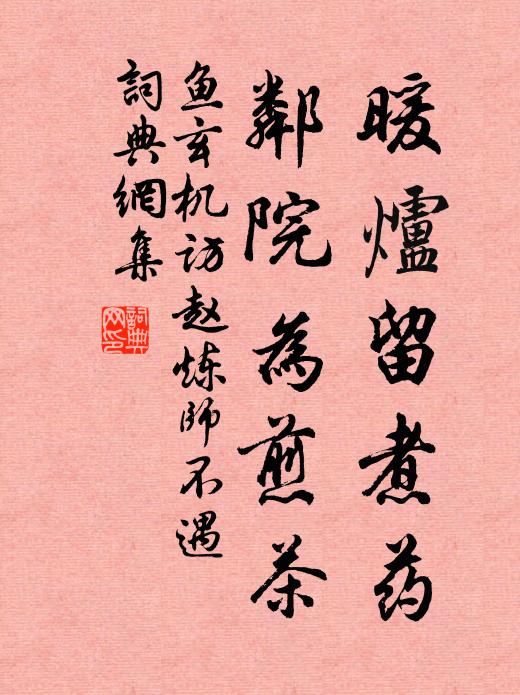 暖爐留煮药
鄰院為煎茶
鱼玄机访赵炼师不遇
詞典網集
詞典网印